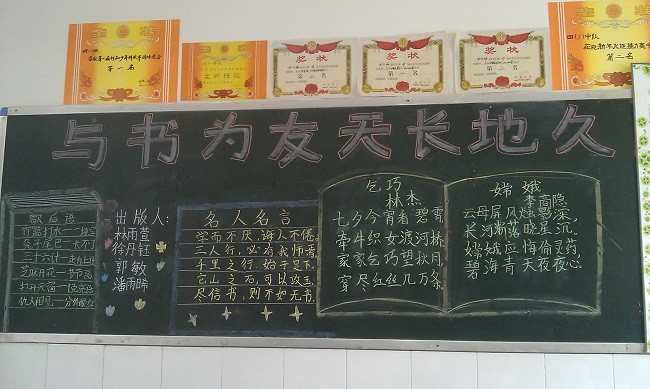 第一名
奖状
奖状
奖状
第二名
与书为友天长地久
歇后语
竹篮打水一场空
兔子尾巴—长不了
三十六计—走为上计
芝麻开花—节节高
仇人相见—分外眼红
出版人:
林雨萱
徐丹钰
郭敏
潘雨晞
名人名言
学而不厌,诲人不倦。
三人行,必有我师焉
千里之行,始于足下。
它山之石,可以攻玉。
尽信书,则不如无书。
乞巧
林杰
七夕今宵看碧霄
牵牛织女渡河桥
家家乞巧望秋月
穿尽红丝几万条
嫦娥
李商隐
云母屏风烛影深,
长河渐落晓星沉。
嫦娥应悔偷灵药,
碧海青天夜夜心。